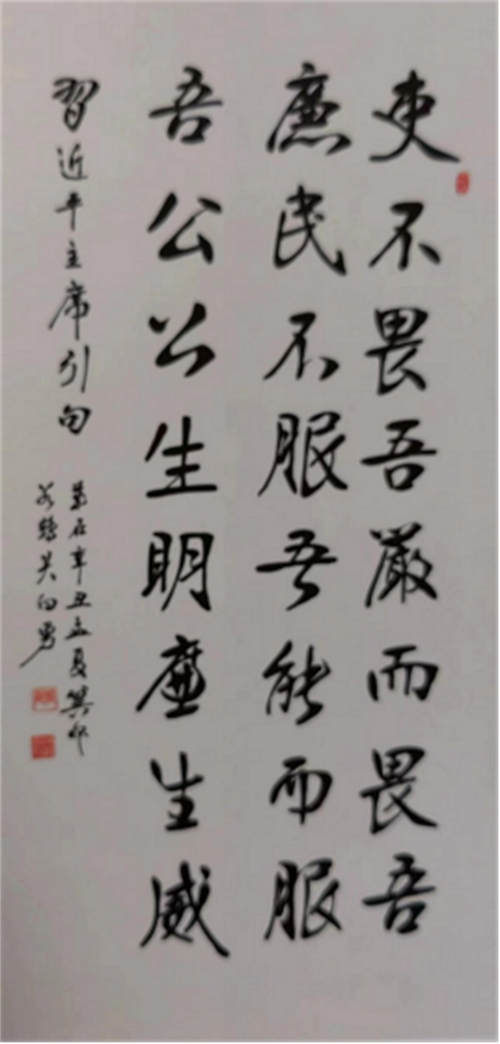 吏不畏吾嚴而畏吾
廉民不服吾能而服
吾公公生明廉生威
習近平主席引句
歲在辛丑孟夏冀
吴向勇